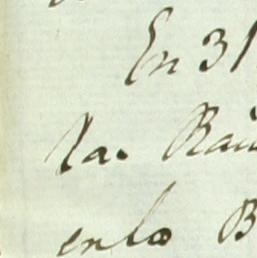 En 31
la. Rai
enlo B